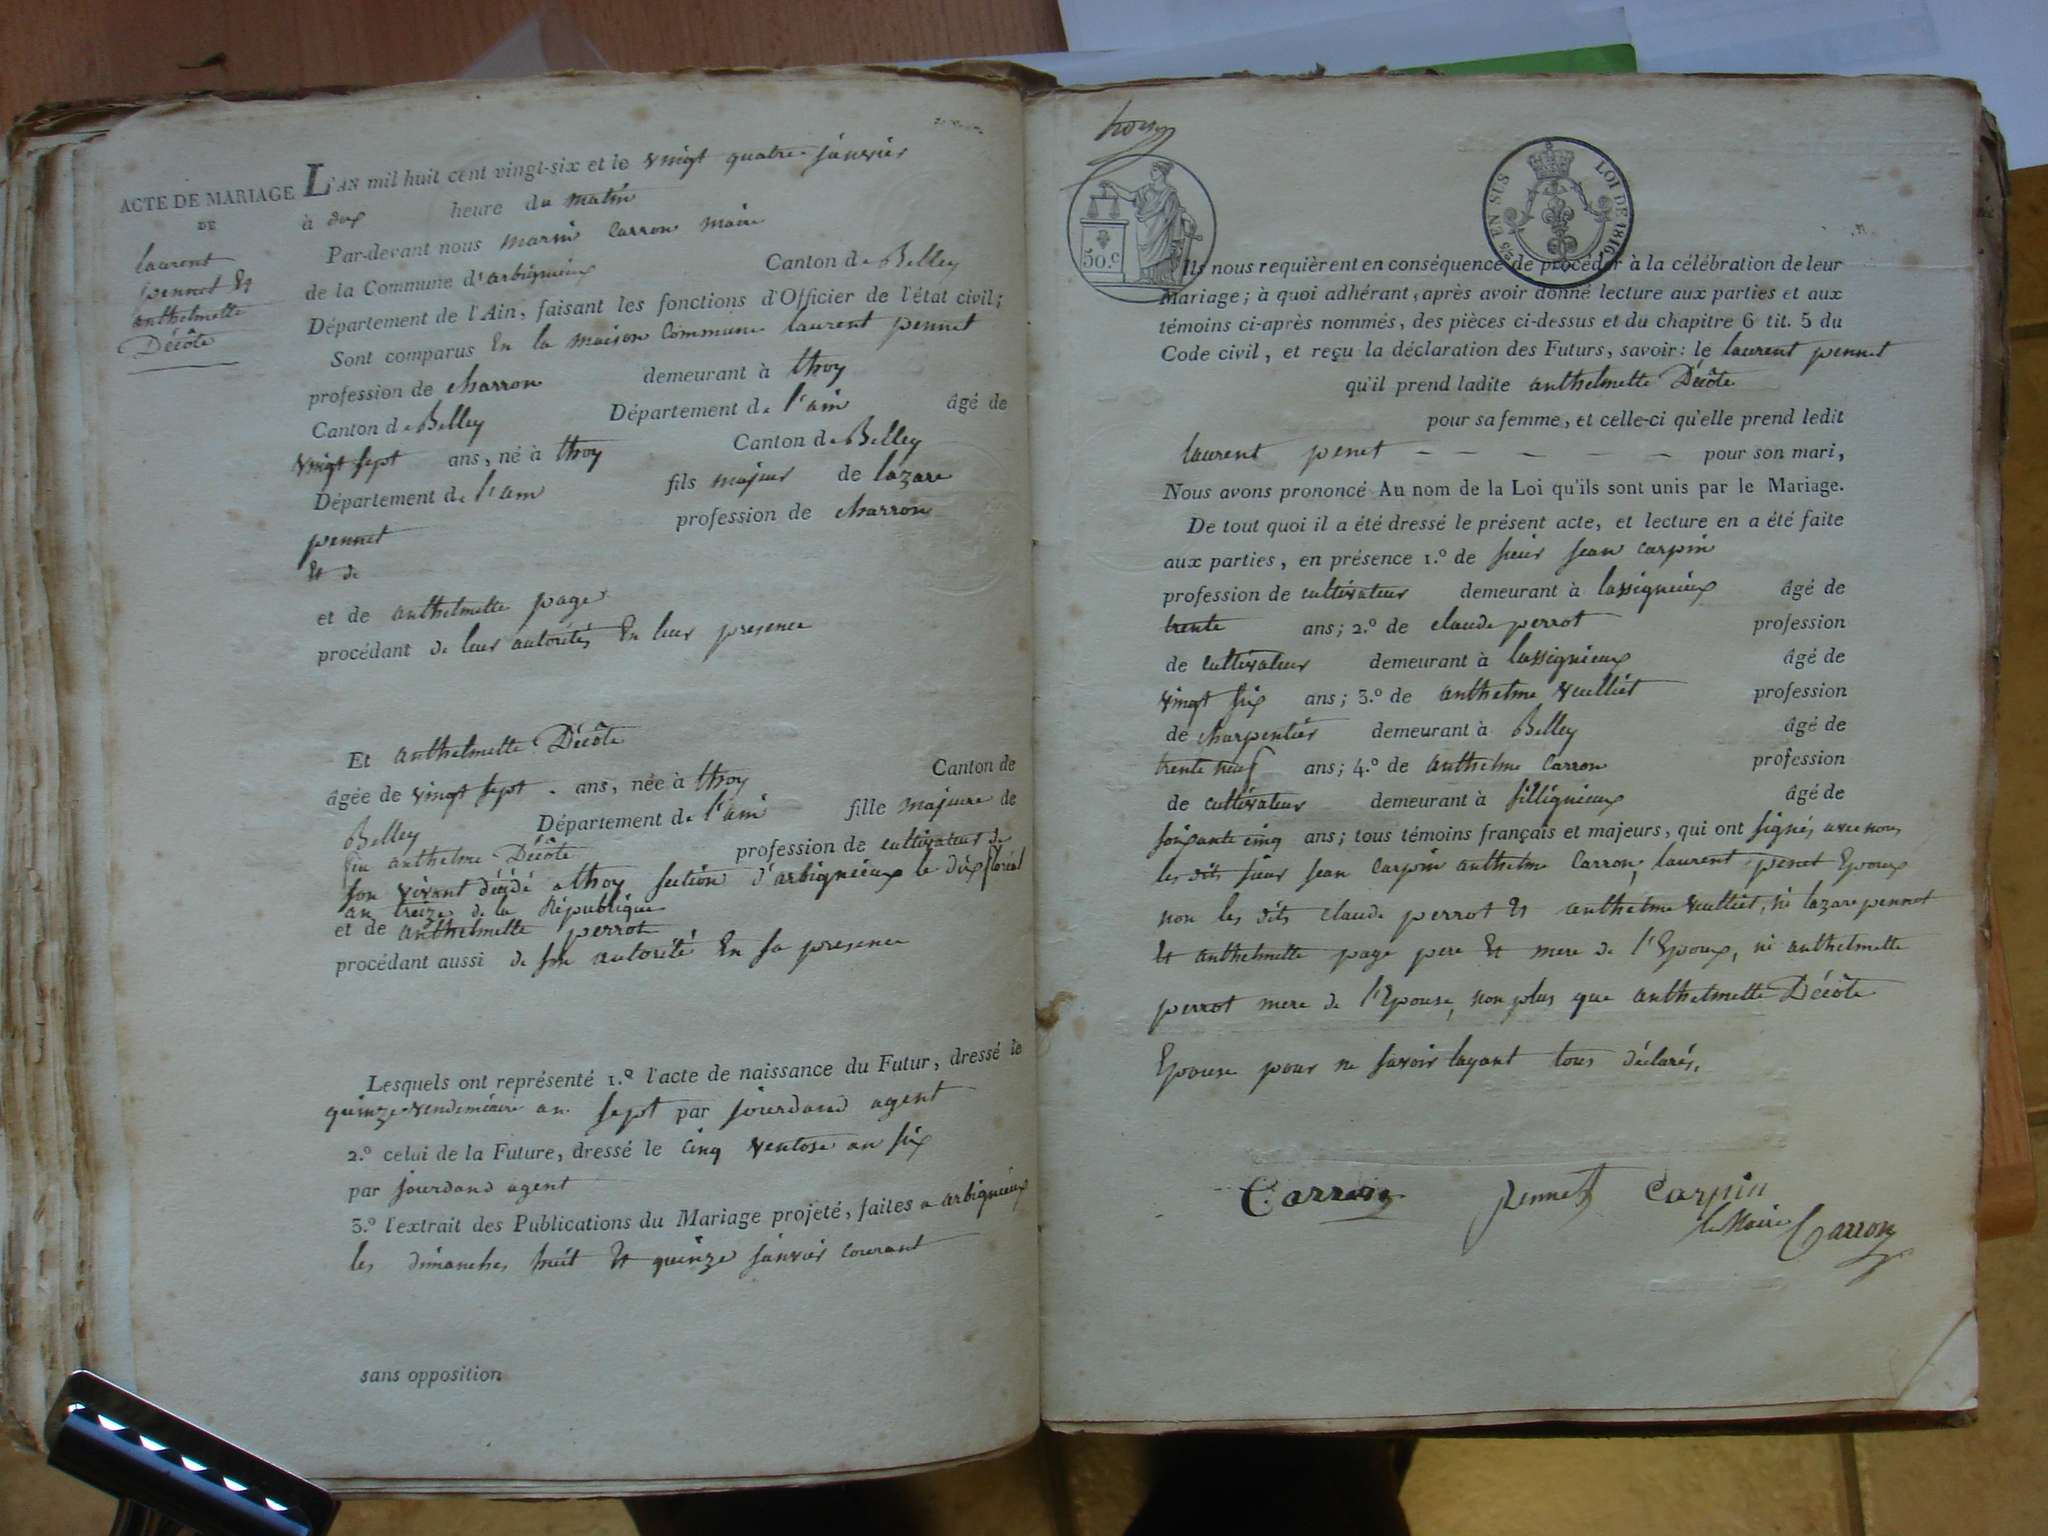 ACTE DE MARIAGE
DE
laurent
pennet Et
anthelmette
Décôte
L'AN mil huit cent vingt-six et le vingt quatre janvier
à dix heure du matin
Par-devant nous marin Carron maire
de la Commune d'arbignieux Canton de Belley
Département de l'Ain, faisant les fonctions d'Officier de l'état civil;
Sont comparus En la maison Commune laurent pennet
profession de charron demeurant à thoy
Canton de Belley Département de l'ain âgé de
vingt sept ans, né à thoy Canton de Belley
Département de l'ain fils majeur de lazare
pennet profession de charron
Et de
et de anthelmette page
procédant de leur autorités En leur presence
Et anthelmette Décôte
âgée de vingt sept ans, née à thoy Canton de
Belley Département de l'ain fille majeure de
feu anthelme Décôte profession de cultivateur de
son vivant décédé a thoy section d'arbignieux le dix floréal
an treize de la République
et de anthelmette perrot
procédant aussi de son autorité En sa presence
Lesquels ont représenté 1.º l'acte de naissance du Futur, dressé le
quinze vendemiaire an sept par jourdand agent
2.º celui de la Future, dressé le cinq ventose an six
par jourdand agent
3.º l'extrait des Publications du Mariage projeté, faites a arbignieux
les dimanches huit Et quinze janvier courant
sans opposition
50.c
25 EN SUS LOI DE 1816
Ils nous requièrent en conséquence de procéder à la célébration de leur
Mariage; à quoi adhérant, après avoir donné lecture aux parties et aux
témoins ci-après nommés, des pièces ci-dessus et du chapitre 6 tit. 5 du
Code civil, et reçu la déclaration des Futurs, savoir: le laurent pennet
qu'il prend ladite anthelmette Décôte
pour sa femme, et celle-ci qu'elle prend ledit
laurent penet - - - - - pour son mari,
Nous avons prononcé Au nom de la Loi qu'ils sont unis par le Mariage.
De tout quoi il a été dressé le présent acte, et lecture en a été faite
aux parties, en présence 1.º de sieur jean carpin
profession de cultivateur demeurant à lassignieux âgé de
trente ans; 2.º de claude perrot profession
de cultivateur demeurant à lassignieux âgé de
vingt six ans; 3.º de anthelme vuilliet profession
de charpentier demeurant à Belley âgé de
trente neuf ans; 4.º de anthelme Carron profession
de cultivateur demeurant à sillignieux âgé de
soixante cinq ans; tous témoins français et majeurs, qui ont signés avec nous
les dits sieur jean Carpin anthelme Carron, laurent penet Epoux
non les dits claude perrot Et anthelme vuilliet, ni lazare pennet
Et anthelmette page pere Et mere de l'Epoux, ni anthelmette
perrot mere de l'Epouse, non plus que anthelmette Décôte
Epouse pour ne savoir layant tous déclarés.
Carron pennet Carpin
le Maire Carron